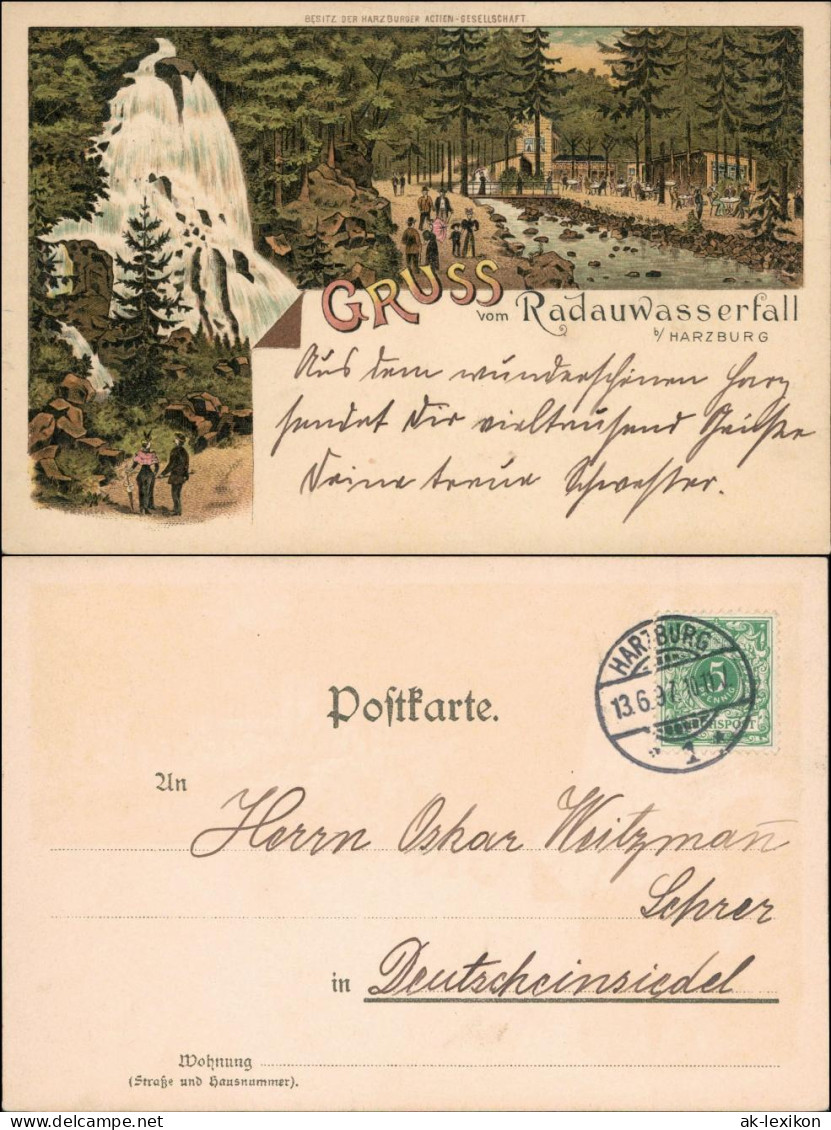 BESITZ DER HARZBURGER ACTION-GESELLSCHAFT.
GRUSS vom Radauwasserfall
b/ HARZBURG
Aus dem wunderschönen Harz
sendet Dir vieltausend Grüße
Deine treue Schwester.
HARZBURG
13.6.97. 10-11
1
5
REICHSPOST
Postkarte.
An Herrn Oskar Weitzmañ
Lehrer
in Deutscheinsiedel
Wohnung
(Straße und Hausnummer).
delcampe.net
ak-lexikon